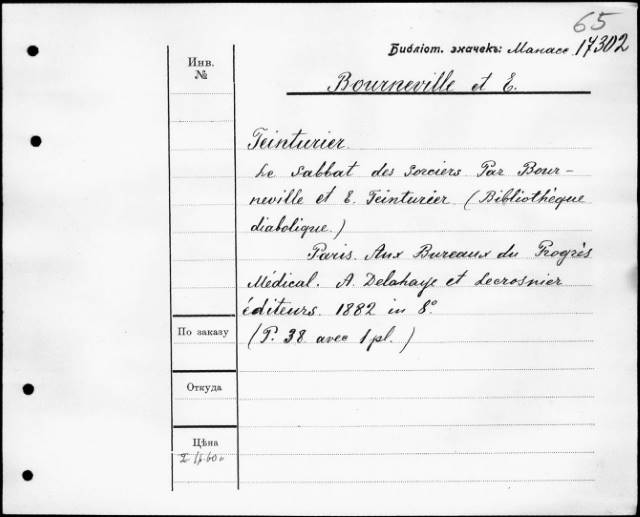 65
Библіот. значекъ: Манасс. 17302
Инв.
№
Bourneville et E.
Teinturier.
Le Sabbat des Sorciers. Par Bour-
neville et E. Teinturier. (Bibliothèque
diabolique.)
Paris. Aux Bureaux du Progrès
Médical. A. Delahaye et Lecrosnier
éditeurs. 1882 in 8°
(P. 38 avec 1 pl.)
По заказу
Откуда
Цѣна